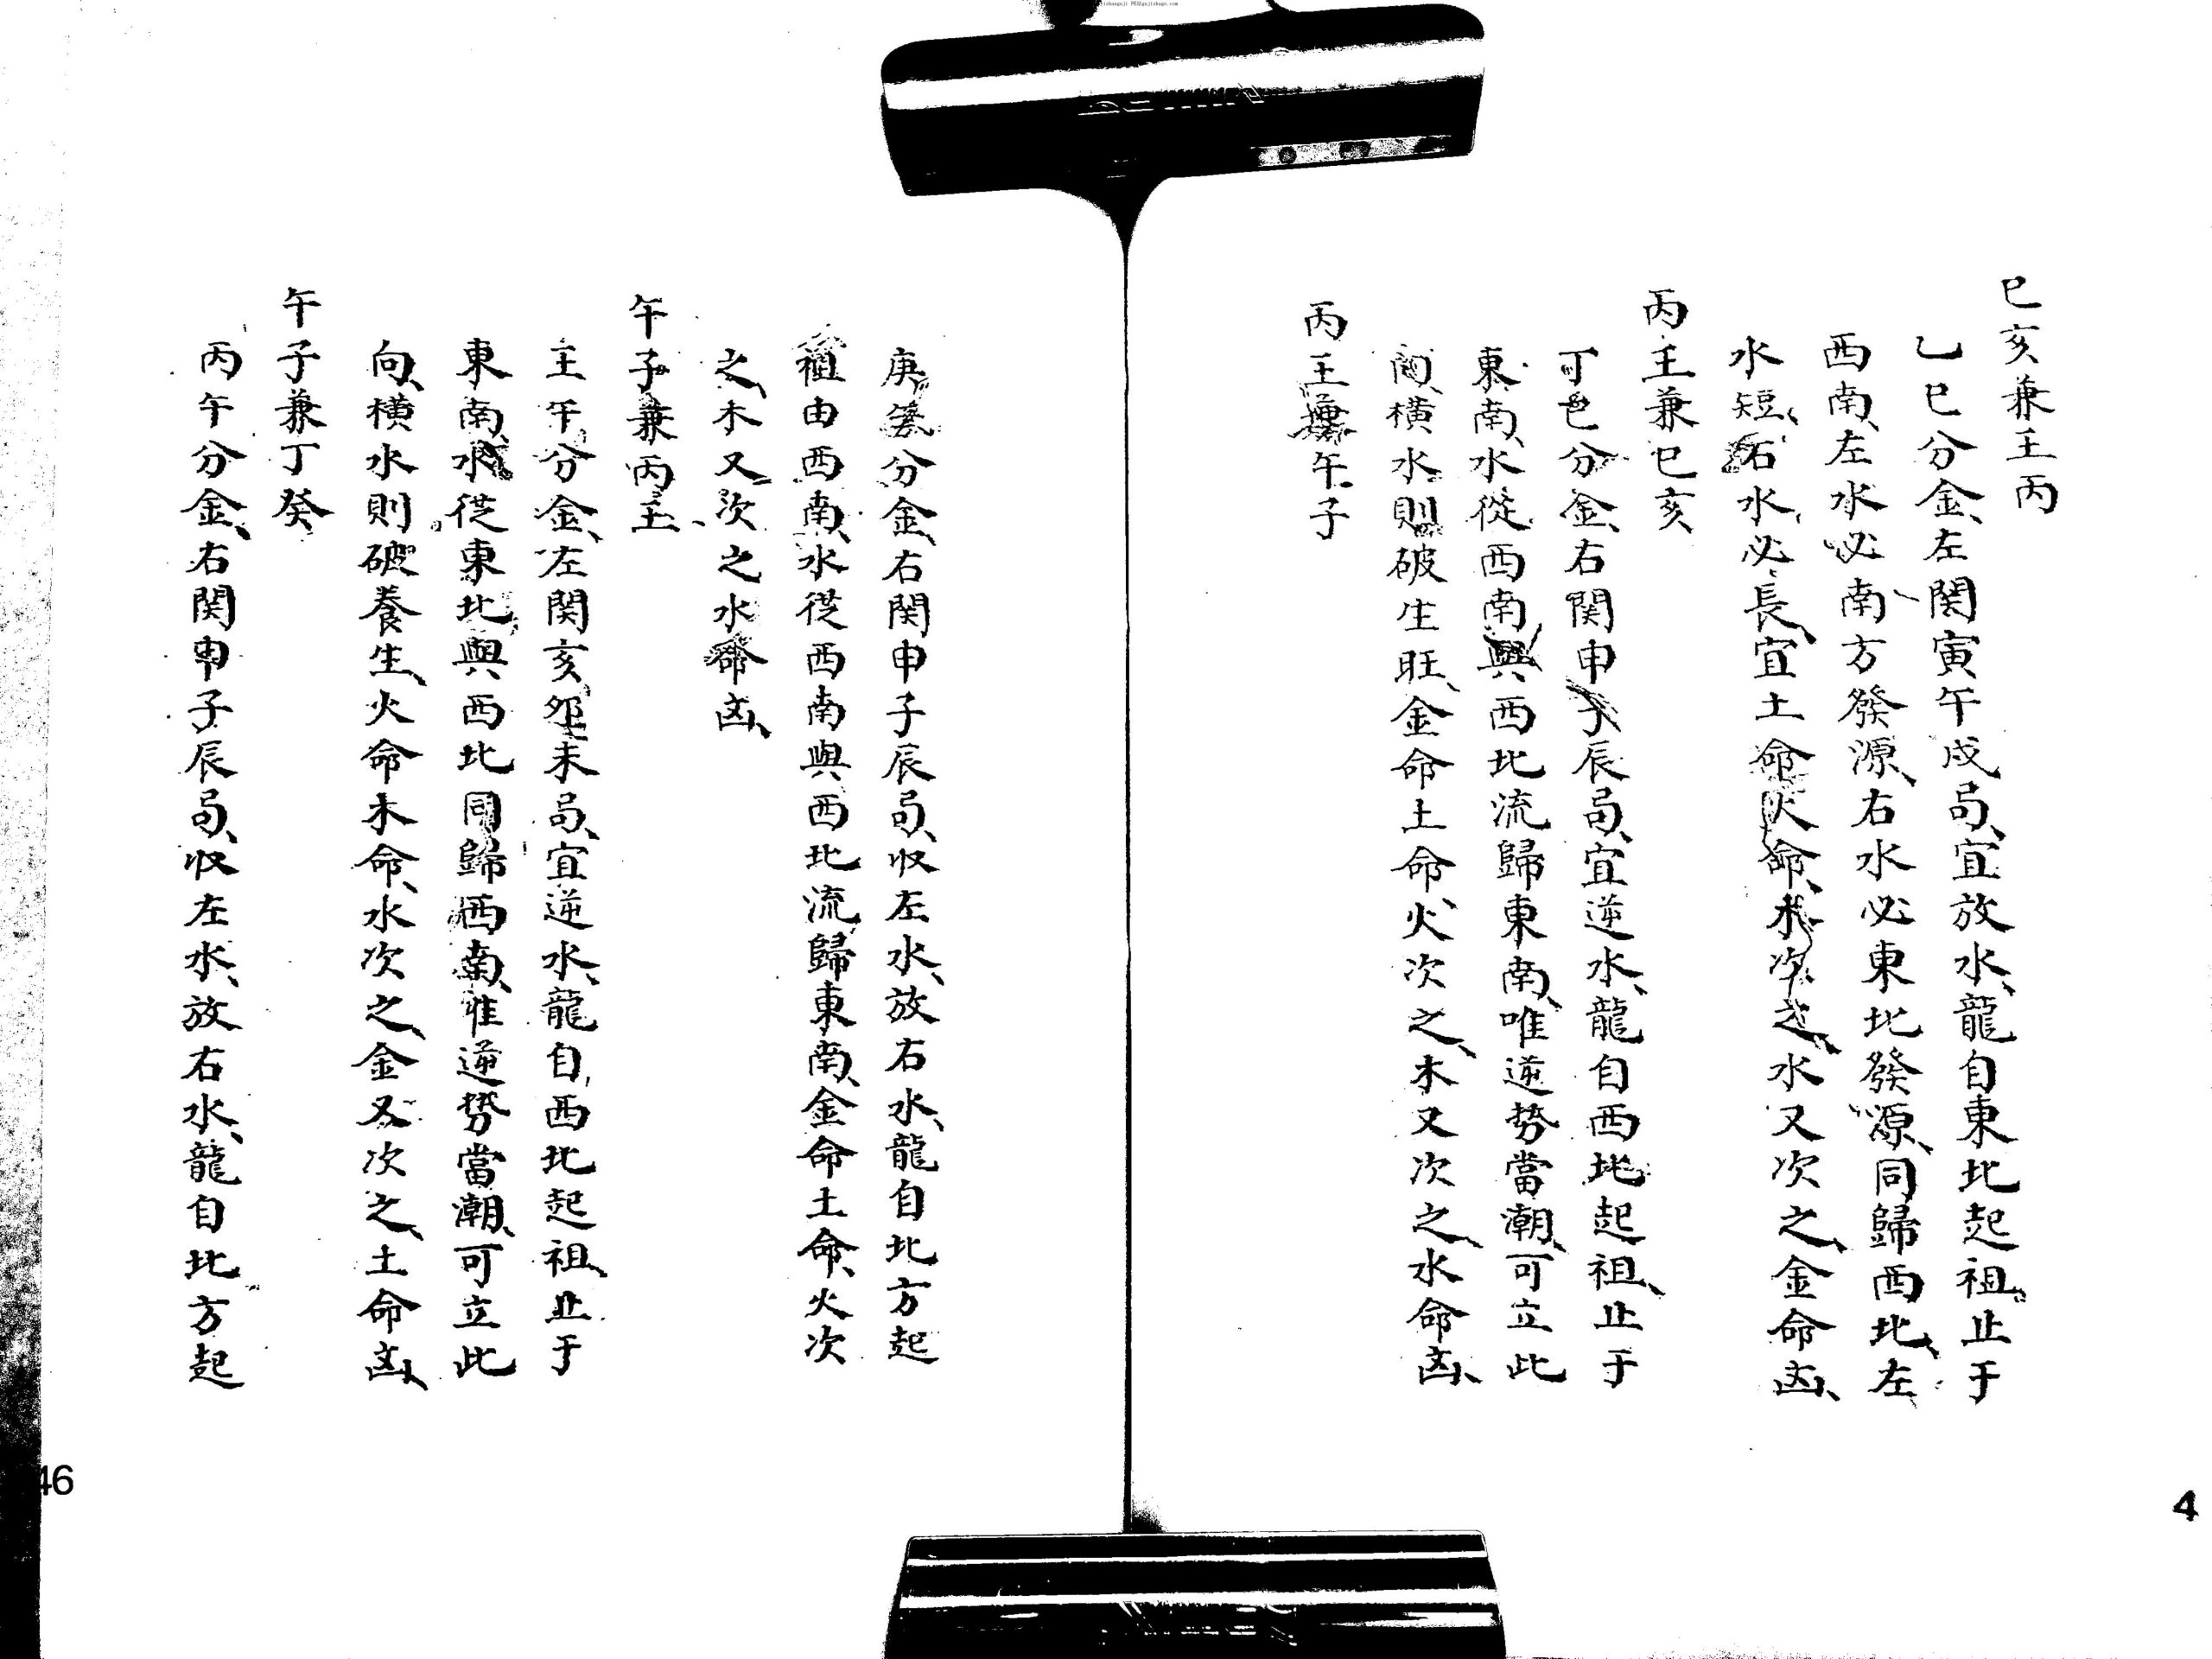 巳亥兼壬丙
乙巳分金、左関寅午戍局、宜放水、龍自東北起祖、止于
西南、左水必南方發源、右水必東北發源、同歸西北、左
水短、右水必長、宜土命火命、木次之、水又次之、金命凶、
丙壬兼巳亥
丁巳分金、右関申子辰局、宜逆水、龍自西北起祖、止于
東南、水從西南與西北流歸東南、唯逆势當潮、可立此
向、橫水則破生旺、金命土命、火次之、木又次之、水命凶、
丙壬兼午子
庚午分金、右関申子辰局、收左水、放右水、龍自北方起
祖由西南、水從西南與西北流歸東南、金命土命、火次
之、木又次之水命凶、
午子兼丙壬
壬午分金、左関亥卯未局、宜逆水、龍自西北起祖、止于
東南、水從東北與西北同歸西南、唯逆势當潮、可立此
向、橫水則破養生、火命木命、水次之、金又次之、土命凶、
午子兼丁癸
丙午分金、右関申子辰局、收左水、放右水、龍自北方起
46
4